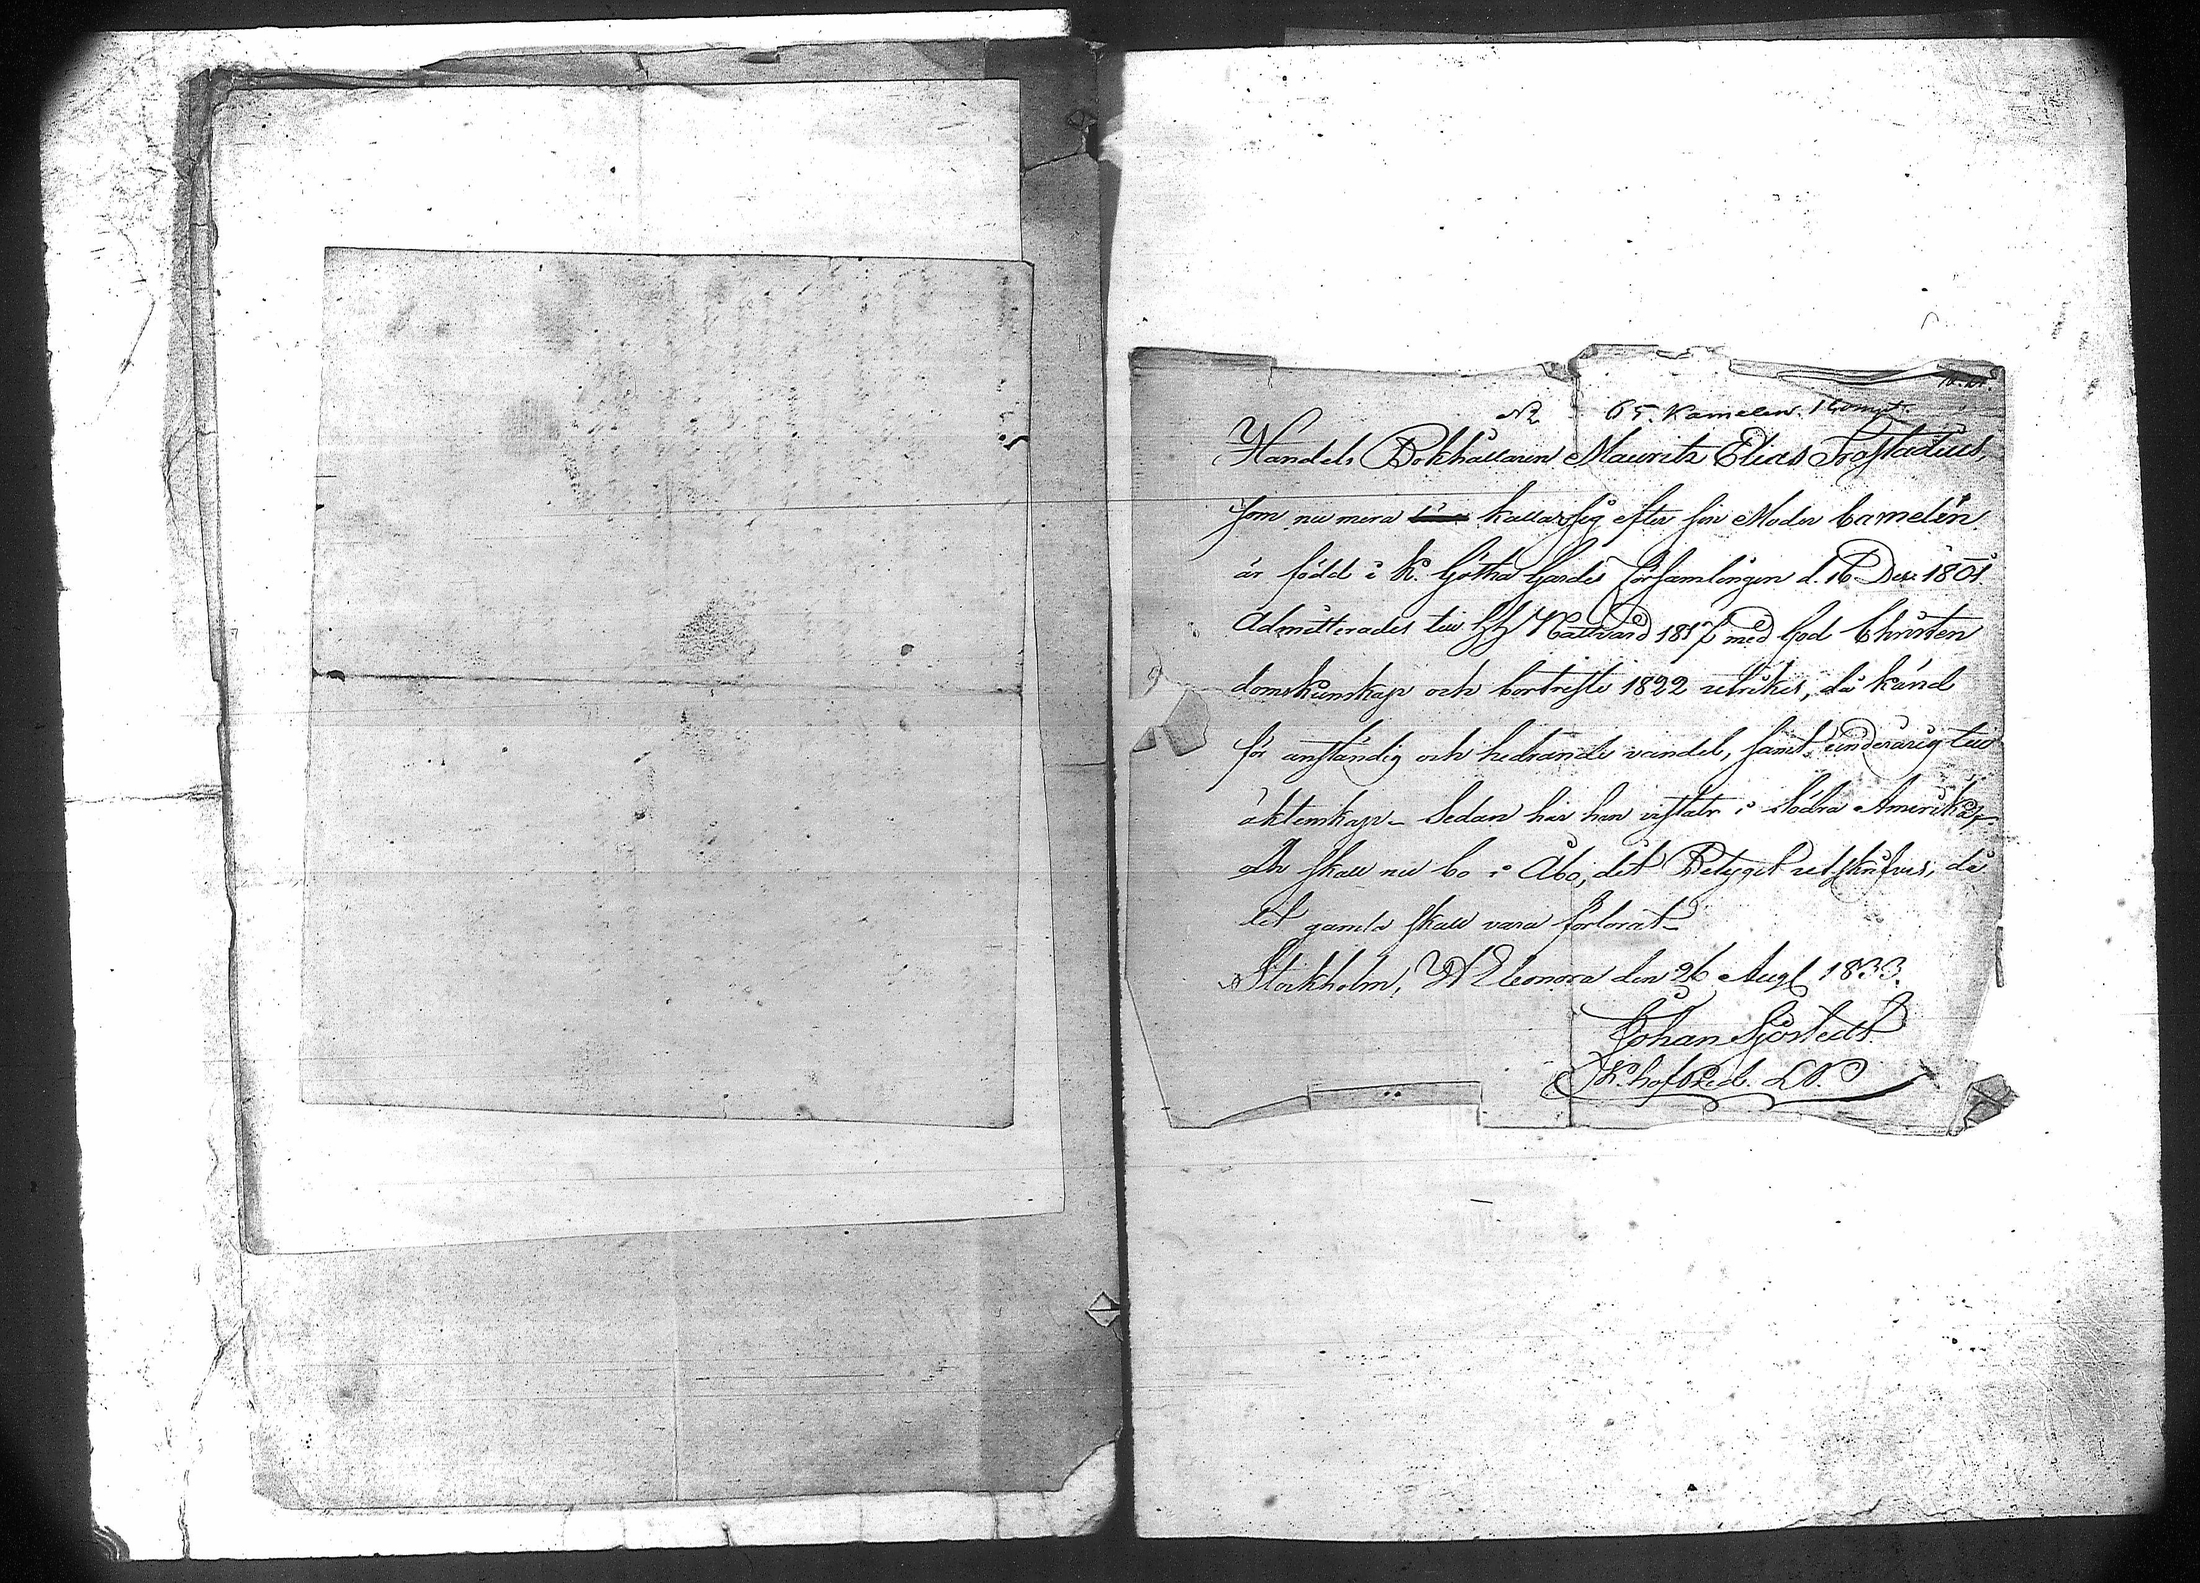 N. 65. Kamelen. 1
Handels Bokhållaren Mauritz Elias Frostadius,
som nu mera kallar sig efter sin Moder Camelén
är född i K. Götha Gardes Församlingen d. 16 Dec. 1801.
Admitterades till HH Nattvard 1817 med God Christen
domskunskap och bortreste 1822 utrikes, då känd
för anständig och hedrande vandel, samt underårig till
äktenskap – Sedan har han vistats i Södra Amerika,
och skall nu bo i Åbo, det Betyget utskrifves, då
det gamla skall vara förlorat –
Stockholm, U Eleonora den 26 Aug 1833.
Johan Sjöstedt.
K. hofPred. LN.